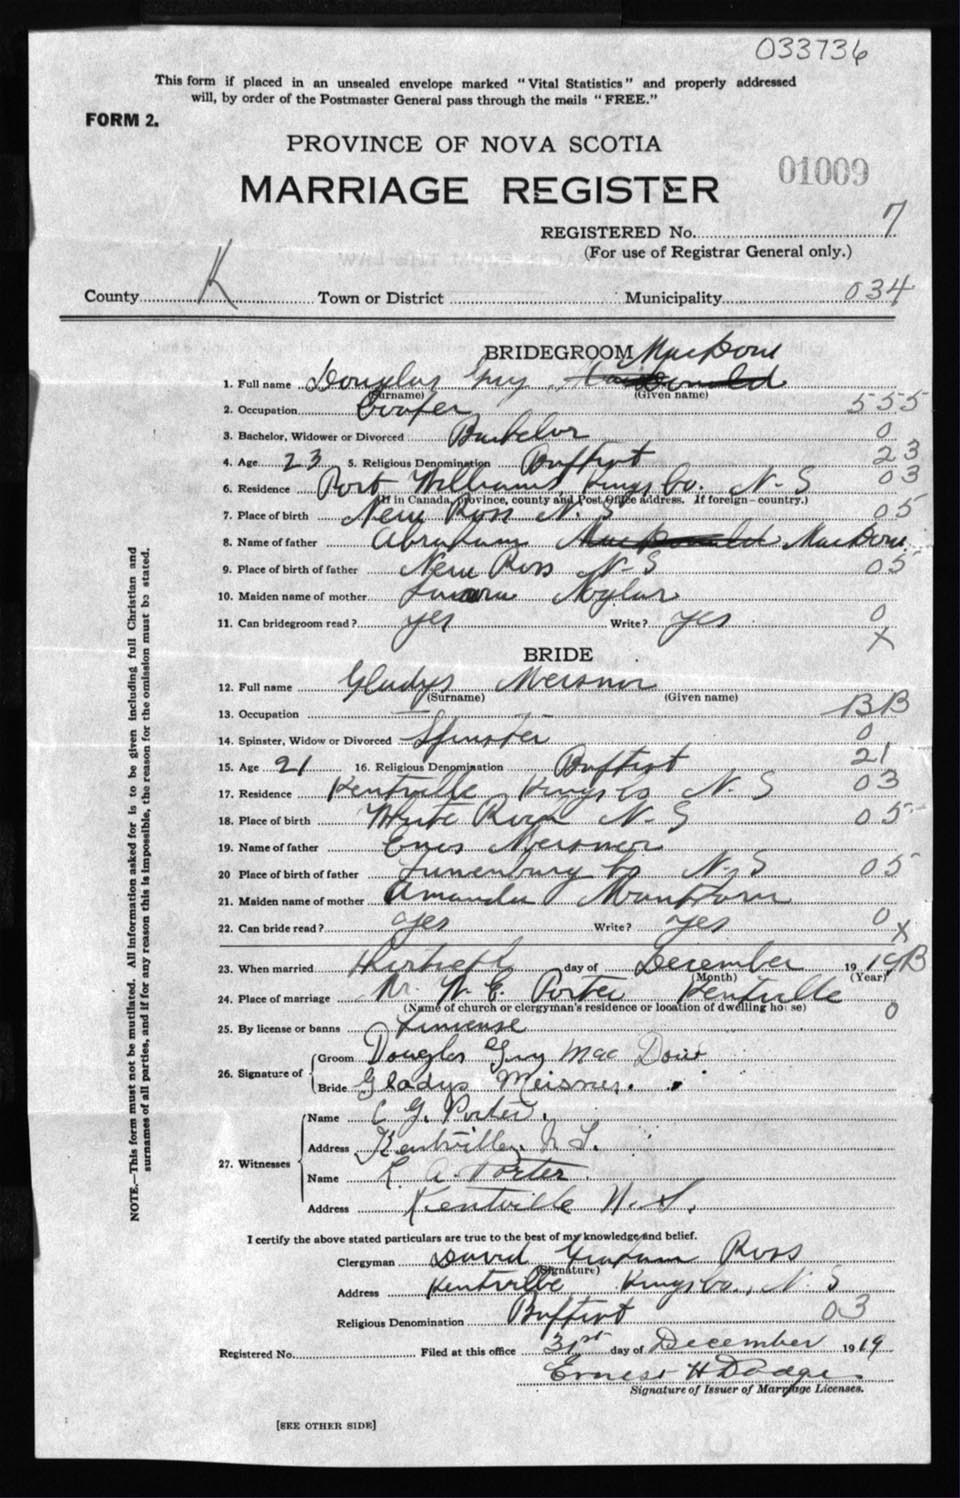 033736
This form if placed in an unsealed envelope marked "Vital Statistics" and properly addressed
will, by order of the Postmaster General pass through the mails "FREE."
FORM 2.
PROVINCE OF NOVA SCOTIA
01009
MARRIAGE REGISTER
REGISTERED No. 7
(For use of Registrar General only.)
County K Town or District Municipality 034
BRIDEGROOM MacDow
1. Full name Douglas Guy Donald
(Surname) (Given name)
2. Occupation Cooper 555
3. Bachelor, Widower or Divorced Bachelor 0
4. Age 23 5. Religious Denomination Baptist 23
6. Residence Port Williams Kings Co. N-S 03
(If in Canada, province, county and Post Office address. If foreign—country.)
7. Place of birth New Ross N. S 05
8. Name of father Abraham MacDonald MacDow
9. Place of birth of father New Ross N-S 05
10. Maiden name of mother
11. Can bridegroom read? yes Write? yes 0
X
BRIDE
12. Full name Gladys Meisner
(Surname) (Given name)
13. Occupation BB
14. Spinster, Widow or Divorced Spinster 0
15. Age 21 16. Religious Denomination Baptist 21
17. Residence Kentville Kings Co N. S 03
18. Place of birth N. S 05
19. Name of father Meisner
20 Place of birth of father Lunenburg Co N. S 05
21. Maiden name of mother Amanda
22. Can bride read? yes Write? yes 0 X
23. When married day of December 19 19 B
(Month) (Year)
24. Place of marriage Mr. W. E. Porter Kentville
(Name of church or clergyman's residence or location of dwelling house) 0
25. By license or banns
26. Signature of Groom Douglas Guy Mac Dow
Bride Gladys Meisner.
27. Witnesses
Name C G. Porter.
Address Kentville, N. S.
Name R. A. Porter.
Address Kentville N. S.
I certify the above stated particulars are true to the best of my knowledge and belief.
Clergyman David Graham Ross
(Signature)
Address Kentville Kings Co., N. S
Religious Denomination Baptist 03
Registered No. Filed at this office 31st day of December 1919
Ernest H Dodge
Signature of Issuer of Marriage Licenses.
[SEE OTHER SIDE]
NOTE.—This form must not be mutilated. All information asked for is to be given including full Christian and
surnames of all parties, and if for any reason this is impossible, the reason for the omission must be stated.